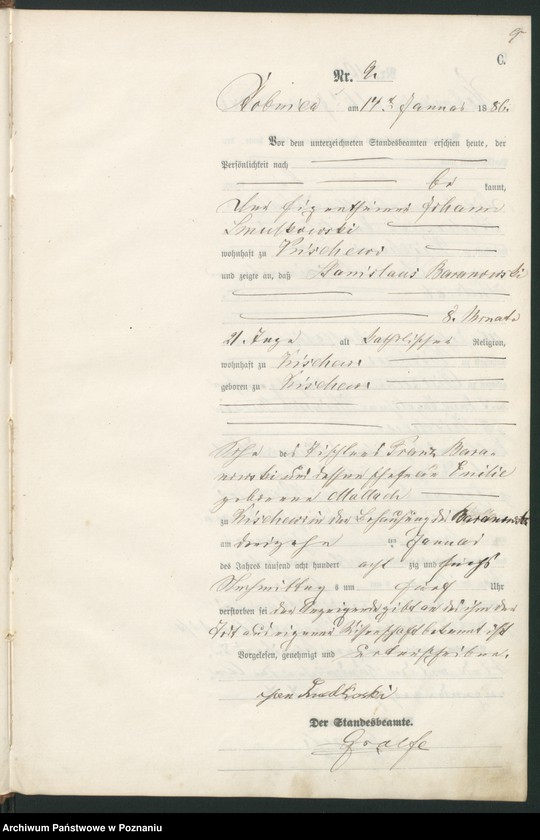 9
C.
Nr. 9.
am 14 Januar 1886.
Vor dem unterzeichneten Standesbeamten erschien heute, der
Persönlichkeit nach
be kannt,
Der Eigenthümer Johann
wohnhaft zu
und zeigte an, daß Stanislaus Baranowski
8 Monate
21 Tage alt katholischer Religion,
wohnhaft zu
geboren zu
Sohn des Tischlers Franz Bara-
nowski und dessen Ehefrau Emilie
geborene Mallach
zu in der Behausung des Baranowski
am dreizehn ten Januar
des Jahres tausend acht hundert acht zig und sechs
Nachmittags um fünf Uhr
verstorben sei. der Anzeigende gibt an daß ihm der
Tod aus eigener Wissenschaft bekannt ist
Vorgelesen, genehmigt und unterschrieben.
Jan
Der Standesbeamte.
Archiwum Państwowe w Poznaniu